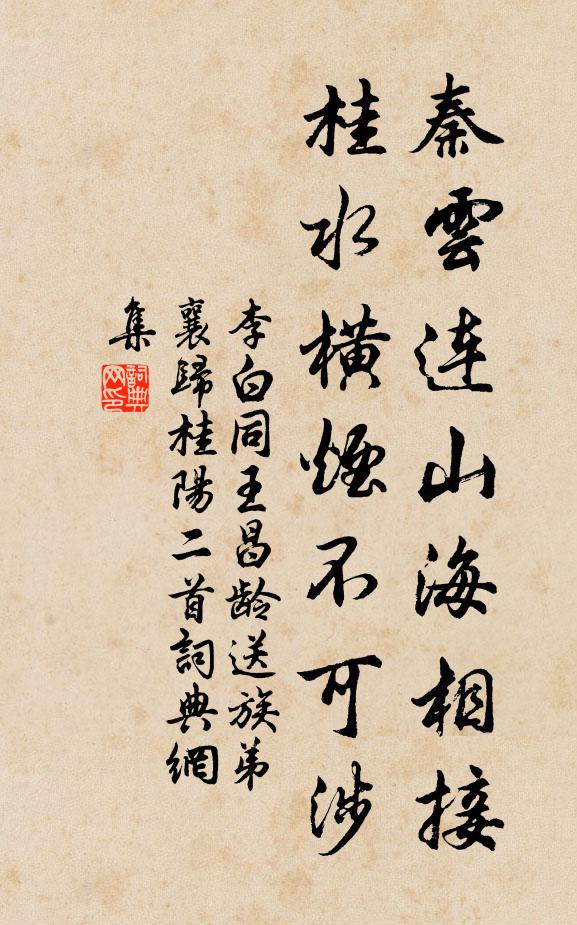 秦雲連山海相接
桂水橫煙不可涉
李白同王昌龄送族弟
襄歸桂陽二首詞典網
集
詞典網印